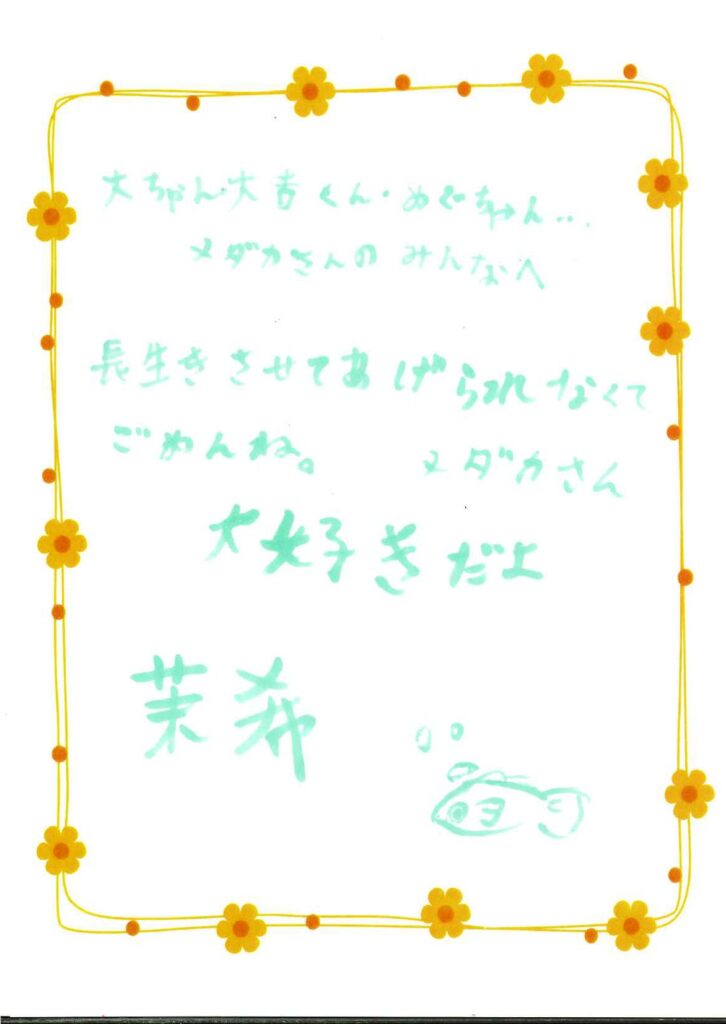 大ちゃん・大吉くん・めぐちゃん...
メダカさんのみんなへ
長生きさせてあげられなくて
ごめんね。 メダカさん
大好きだよ
茉希